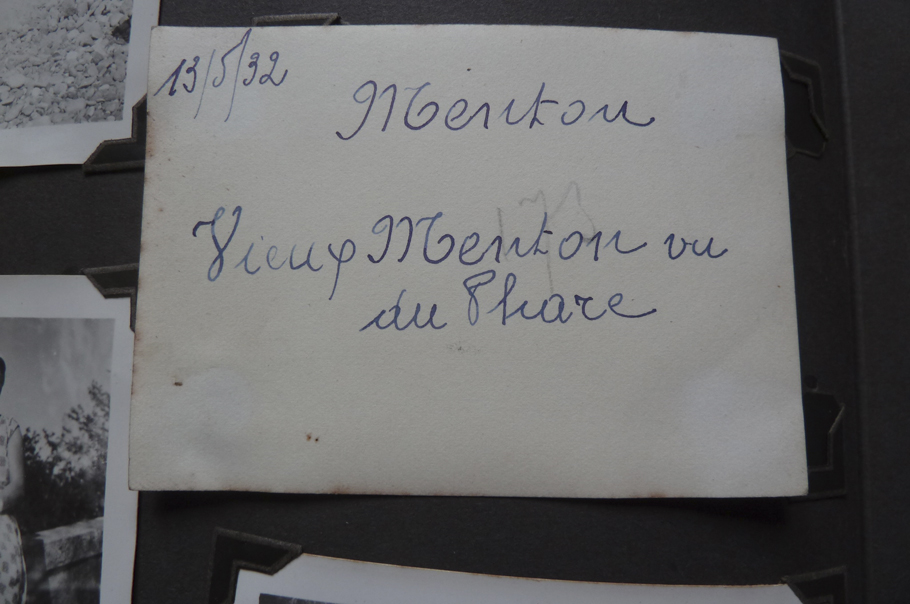 13/5/32
Menton
Vieux Menton vu
du Phare